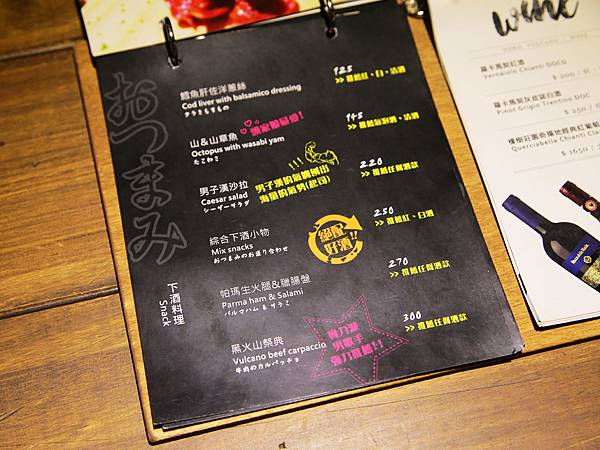 おつまみ
下酒料理
Snack
鱈魚肝佐洋蔥絲
Cod liver with balsamico dressing
タラきもすもの
125
>> 推薦紅、白、清酒
山&山章魚
Octopus with wasabi yam
たこわさ
頭家娘最愛!
145
>> 推薦氣泡酒、清酒
男子漢沙拉
Caesar salad
シーザーサラダ
220
>> 推薦任何酒款
綜合下酒小物
Mix snacks
おつまみのお盛り合わせ
絕配
好酒!!
250
>> 推薦紅、白酒
帕瑪生火腿&臘腸盤
Parma ham & Salami
パルマハム & サラミ
270
>> 推薦任何酒款
黑火山祭典
Vulcano beef carpaccio
牛肉のカルパッチョ
實力派
男歌手
強力推薦!!
300
>> 推薦任何酒款
wine
羅卡馬契紅酒
Vernaiolo Chianti DOCG
$ 200 /
Pinot Grigio Trentino DOC
$ 250 /
橡樹莊園奇揚地經典紅葡萄
Querciabella Chianti Clas
$ 1650 /